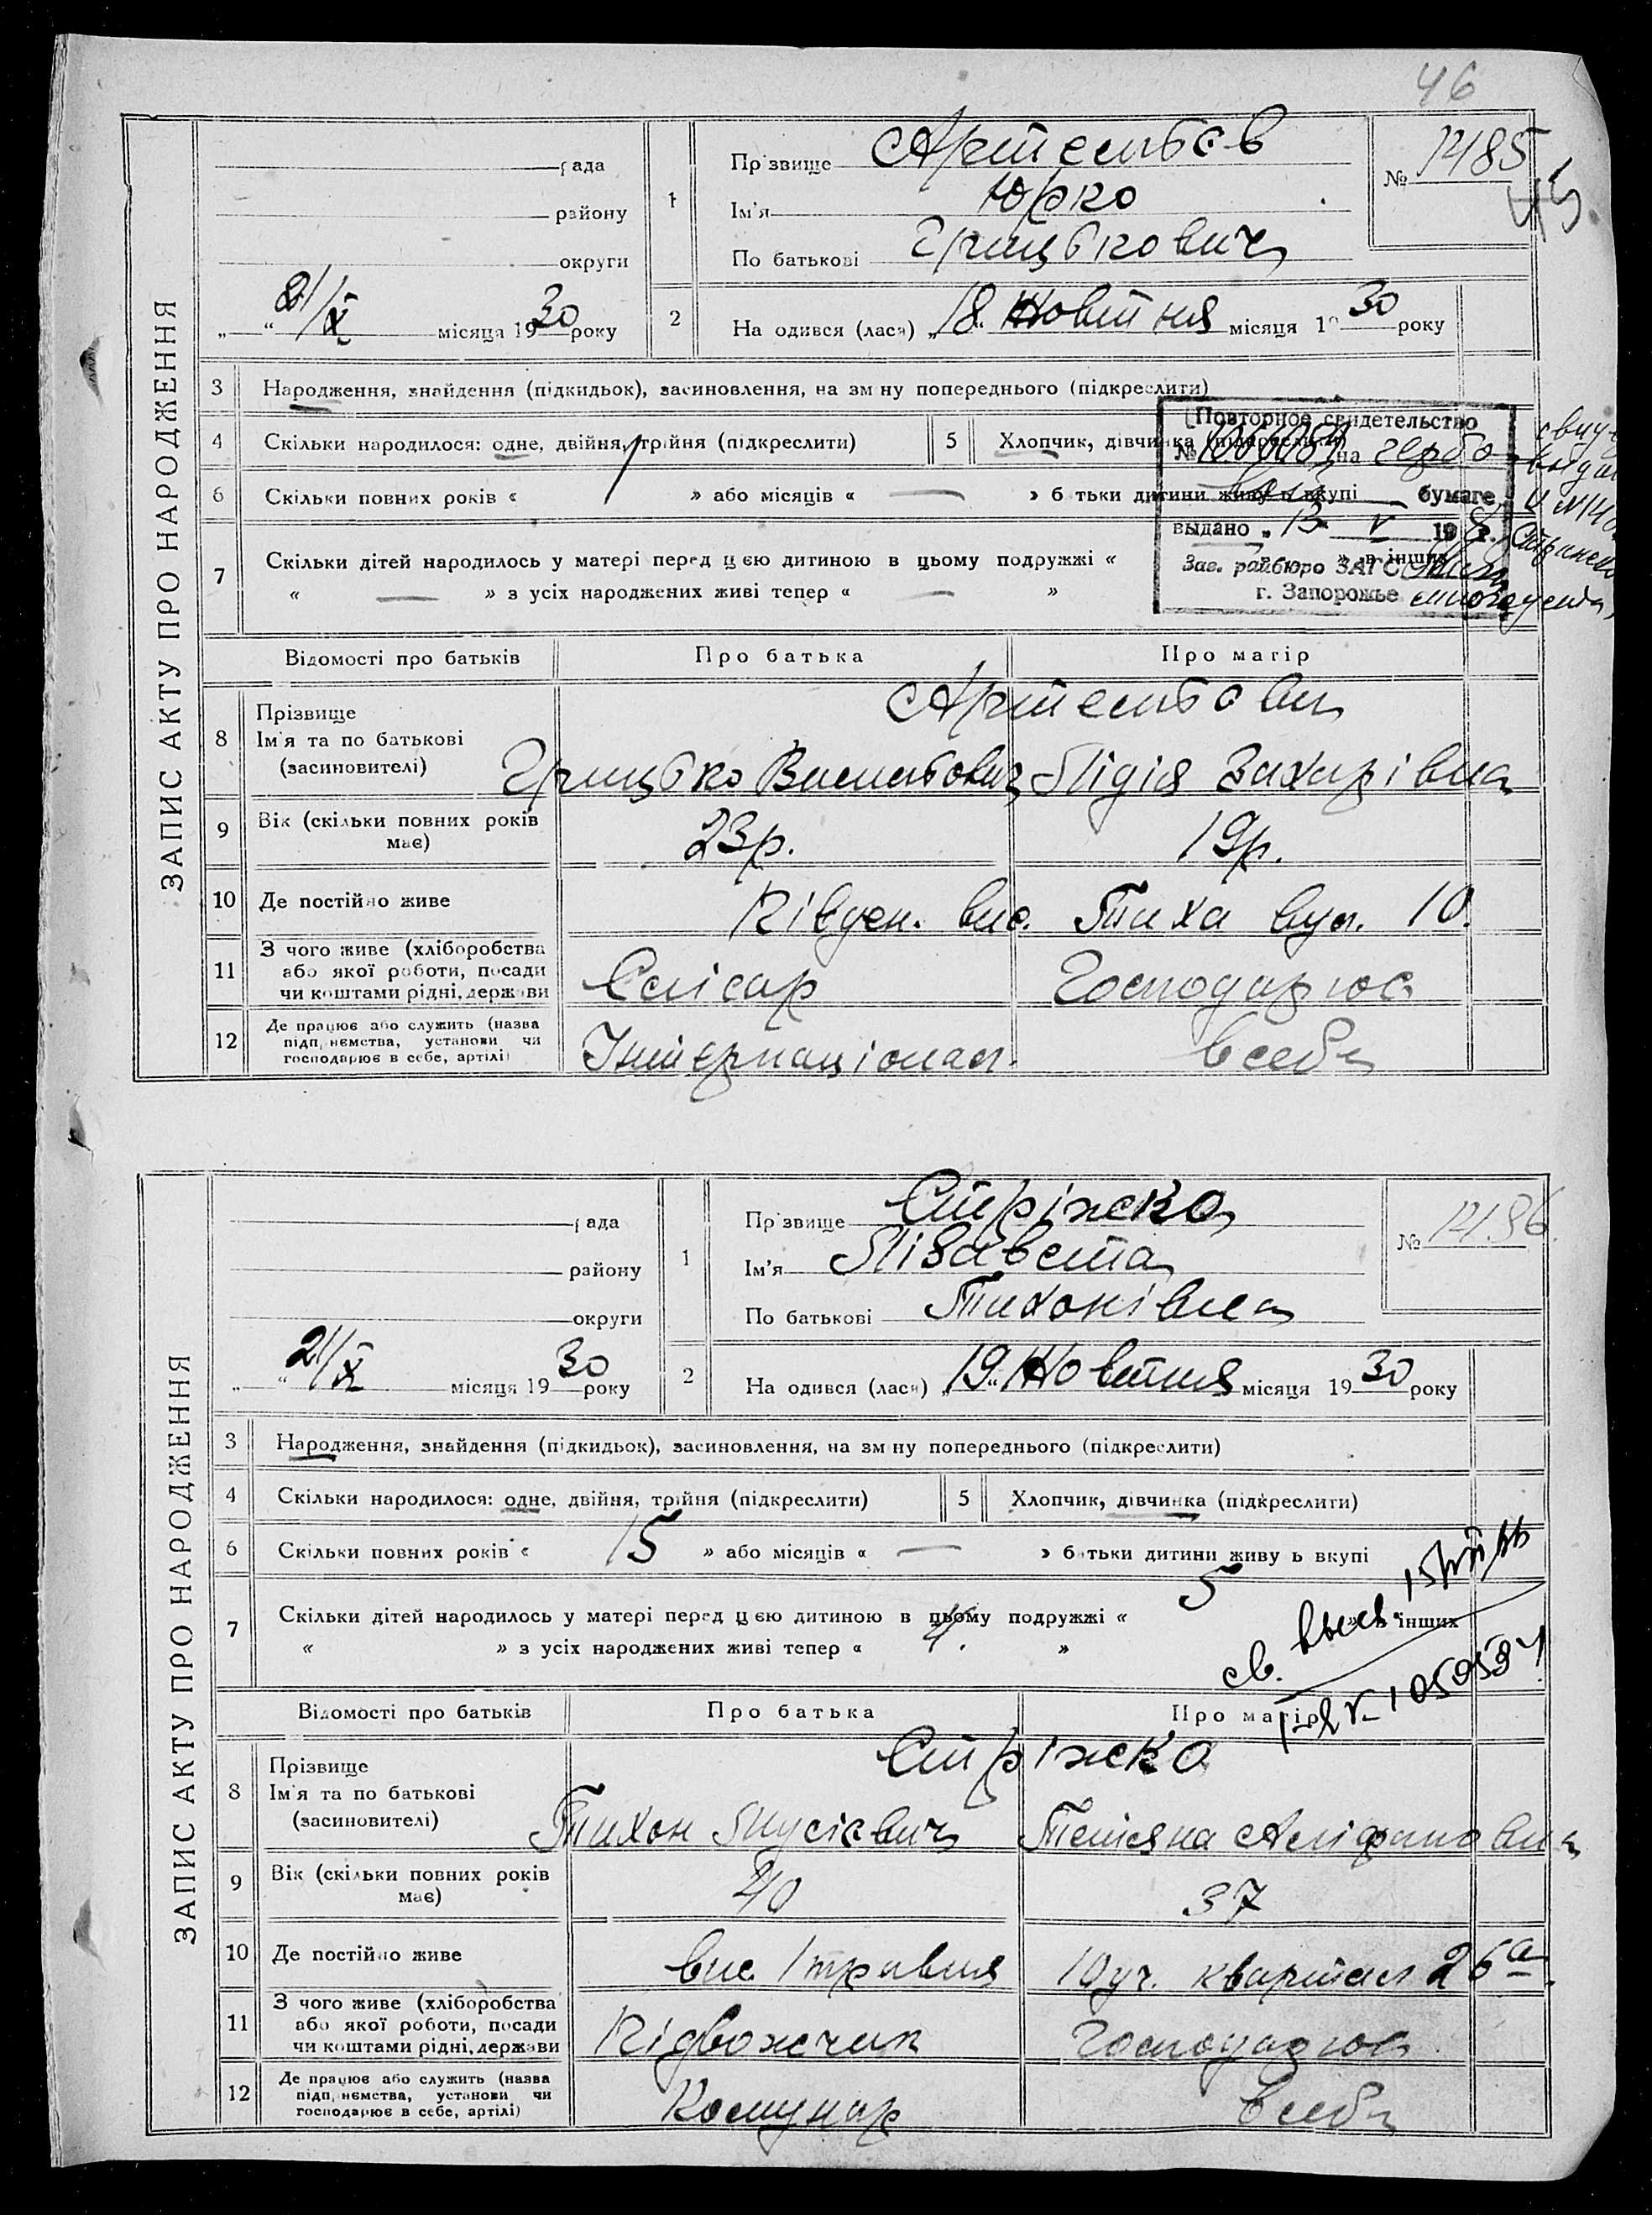 46
ЗАПИС АКТУ ПРО НАРОДЖЕННЯ
рада
району
округи
21/X місяця 1930 року
1
Прізвище Артемьєв
Ім'я Юрко
По батькові Грицькович
№ 1485
45.
2
На одився (лася) „18“ Жовтня місяця 1930 року
3 Народження, знайдення (підкидьок), засиновлення, на зм ну попереднього (підкреслити)
4 Скільки народилося: одне, двійня, трійня (підкреслити)
5 Хлопчик, дівчинка (підкреслити)
6 Скільки повних років « 1 » або місяців « — » б тьки дитини живу ь вкупі
7 Скільки дітей народилось у матері перед цією дитиною в цьому подружжі «
» в інших
« — » з усіх народжених живі тепер « — »
Повторное свидетельство
№ на гербо
бумаге
выдано „13 V 19 г.
Зав. райбюро ЗАГС
г. Запорожье
Відомості про батьків Про батька Про матір
8 Прізвище
Ім'я та по батькові
(засиновителі)
Артемьєви
Грицько Васильович Лідія Захарівна
9 Вік (скільки повних років
має)
23р. 19р.
10 Де постійно живе
Півден. вис. Тиха вул. 10.
11 З чого живе (хліборобства
або якої роботи, посади
чи коштами рідні, держави
Слісар Господарює
12 Де працює або служить (назва
підп, нємства, установи чи
господарює в себе, артілі)
Інтернаціонал. в себе
ЗАПИС АКТУ ПРО НАРОДЖЕННЯ
рада
району
округи
21/X місяця 1930 року
1
Прізвище Стріжка
Ім'я Лізавета
По батькові Тихонівна
№ 1486.
2
На одився (лася) „19“ Жовтня місяця 1930 року
3 Народження, знайдення (підкидьок), засиновлення, на зм ну попереднього (підкреслити)
4 Скільки народилося: одне, двійня, трійня (підкреслити)
5 Хлопчик, дівчинка (підкреслити)
6 Скільки повних років « 15 » або місяців « — » батьки дитини живу ь вкупі
7 Скільки дітей народилось у матері перед цією дитиною в цьому подружжі « 5
» в інших
« » з усіх народжених живі тепер « 4. »
св.
1059594
Відомості про батьків Про батька Про матір
8 Прізвище
Ім'я та по батькові
(засиновителі)
Стріжка
Тихон Тетяна
9 Вік (скільки повних років
має)
40 37
10 Де постійно живе
вис. 1 травня 10 уч. квартал 26а.
11 З чого живе (хліборобства
або якої роботи, посади
чи коштами рідні, держави
Підвожчик Господарює
12 Де працює або служить (назва
підп, нємства, установи чи
господарює в себе, артілі)
Комунар в себе